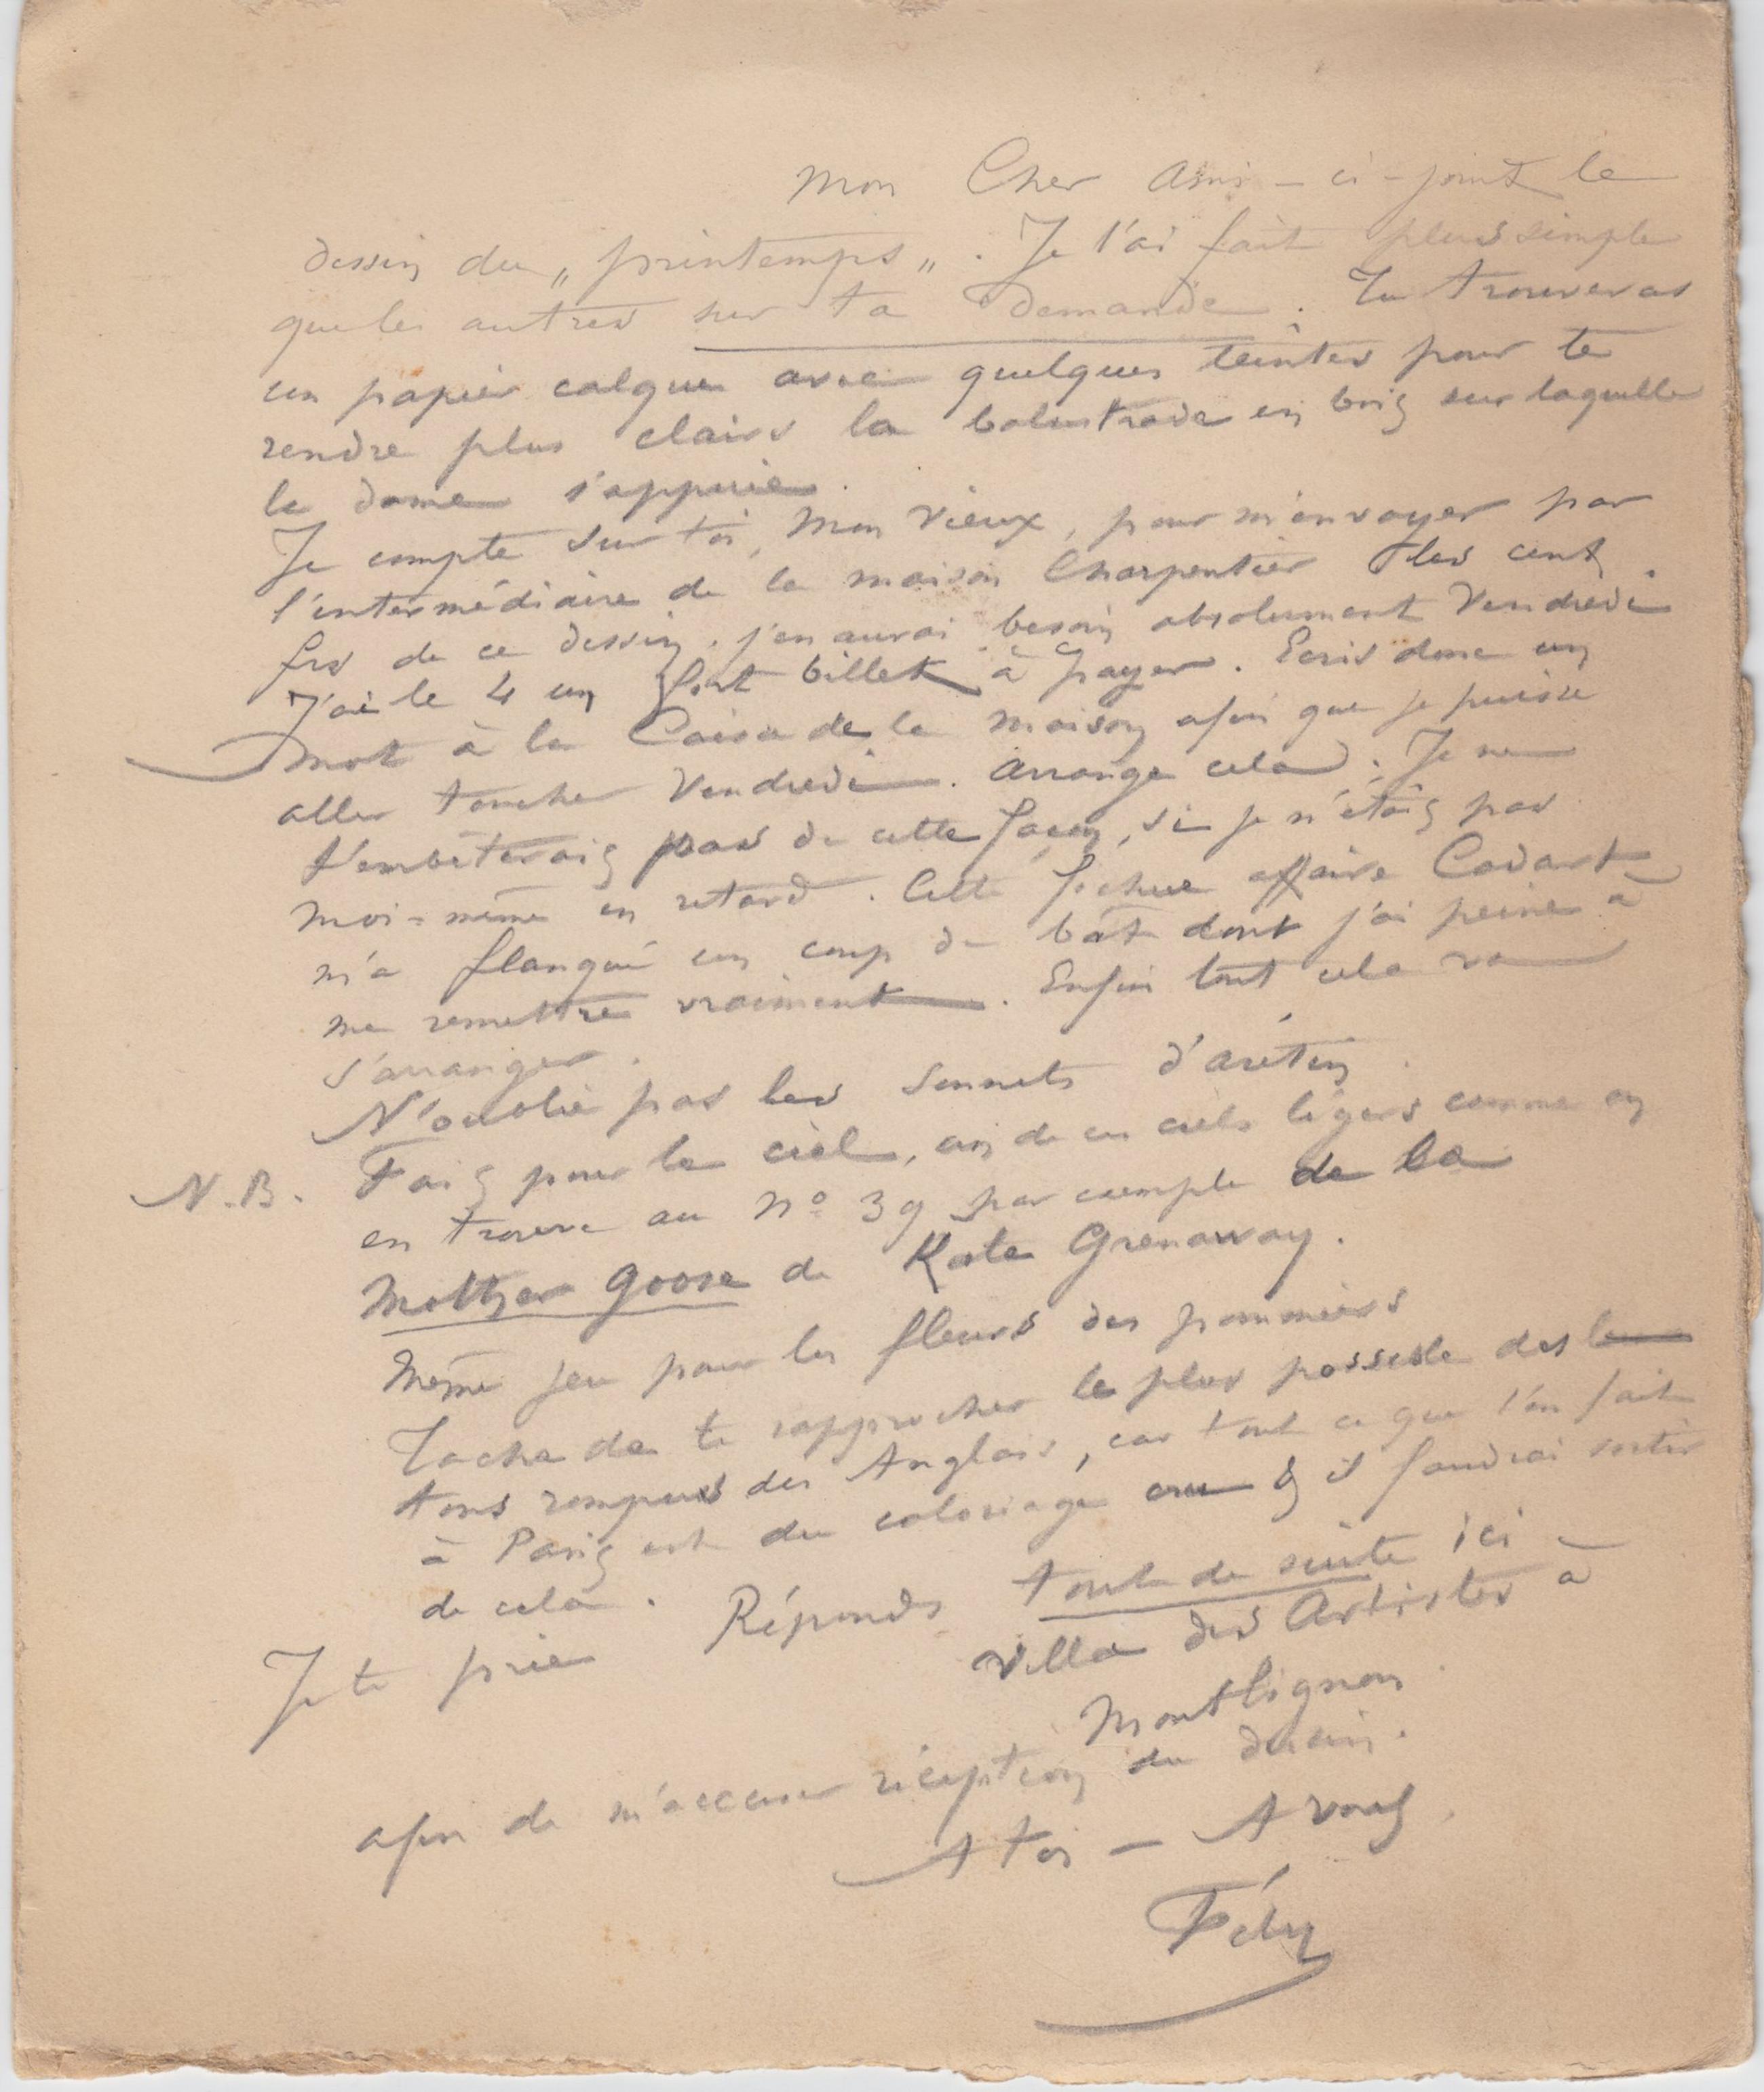 Mon Cher Ami – ci-joint le
dessin du „printemps„. Je l'ai fait plus simple
que les autres sur ta demande. Tu trouveras
un papier calque avec quelques teintes pour te
rendre plus clairs la balustrade en bois sur laquelle
la dame s'appuie.
Je compte sur toi, Mon Vieux, pour m'envoyer par
l'intermédiaire de la maison Charpentier les cent
frs de ce dessin. j'en aurai besoin absolument Vendredi
J'ai le 4 un fort billet à payer. Ecris donc un
mot à la Caisse de la maison afin que je puisse
aller toucher Vendredi. Arrange cela. Je ne
t'embêterais pas de cette façon, si je n'étais pas
moi-même en retard. Cette fichue affaire Cadart
m'a flanqué un coup de bât dont j'ai peine à
me remettre vraiment. Enfin tout cela va
s'arranger.
N'oublie pas les Sonnets d'arétin.
N.B. Fais pour le ciel, un de ces ciels légers comme on
en trouve au no 39 par exemple de la
Mother Goose de Kate Grenaway.
Même jeu pour les fleurs des pommiers
Tache de te rapprocher le plus possible des
tons rompus des Anglais, car tout ce que l'on fait
à Paris est du coloriage cru & il faudrai sortir
de cela. Réponds tout de suite ici
Je te prie Villa des Artistes à
Montlignon
afin de m'accuser réception du dessin.
A toi – A vous.
Fély